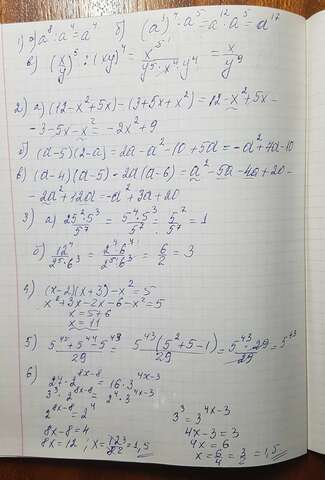 1) а) a⁸ : a⁴ = a⁴ б) (a³)⁴ · a⁵ = a¹² · a⁵ = a¹⁷
в) (x/y)⁵ : (xy)⁴ = x⁵/(y⁵ · x⁴y⁴) = x/y⁹
2) а) (12 - x² + 5x) - (3 + 5x + x²) = 12 - x² + 5x -
- 3 - 5x - x² = -2x² + 9
б) (a - 5)(2 - a) = 2a - a² - 10 + 5a = -a² + 7a - 10
в) (a - 4)(a - 5) - 2a(a - 6) = a² - 5a - 4a + 20 -
- 2a² + 12a = -a² + 3a + 20
3) а) 25² · 5³/5⁷ = 5⁴ · 5³/5⁷ = 5⁷/5⁷ = 1
б) 12⁴/(2⁵ · 6³) = 2⁴ · 6⁴/(2⁵ · 6³) = 6/2 = 3
4) (x - 2)(x + 3) - x² = 5
x² + 3x - 2x - 6 - x² = 5
x = 5 + 6
x = 11
5) (5⁴⁵ + 5⁴⁴ - 5⁴³)/29 = 5⁴³(5² + 5 - 1)/29 = 5⁴³ · 29/29 = 5⁴³
6) 27 · 2⁸ˣ⁻⁸ = 16 · 3⁴ˣ⁻³
3³ · 2⁸ˣ⁻⁸ = 2⁴ · 3⁴ˣ⁻³
2⁸ˣ⁻⁸ = 2⁴
8x - 8 = 4
8x = 12 ; x = 12/8 = 1,5
3³ = 3⁴ˣ⁻³
4x - 3 = 3
4x = 6
x = 6/4 = 3/2 = 1,5